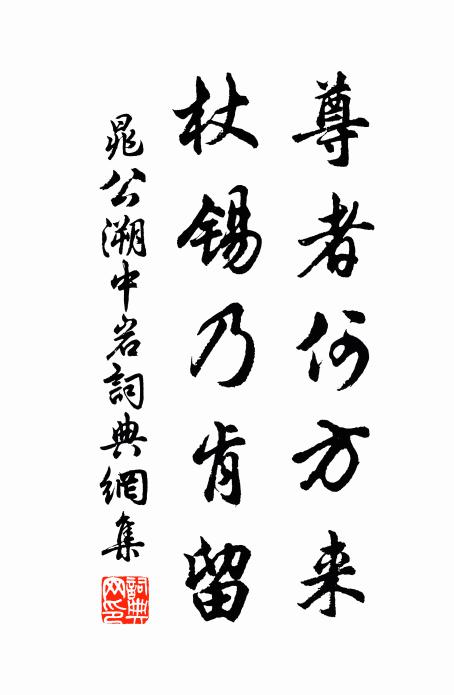 尊者何方来
杖锡乃肯留
晁公溯中岩詞典網集
詞典网印